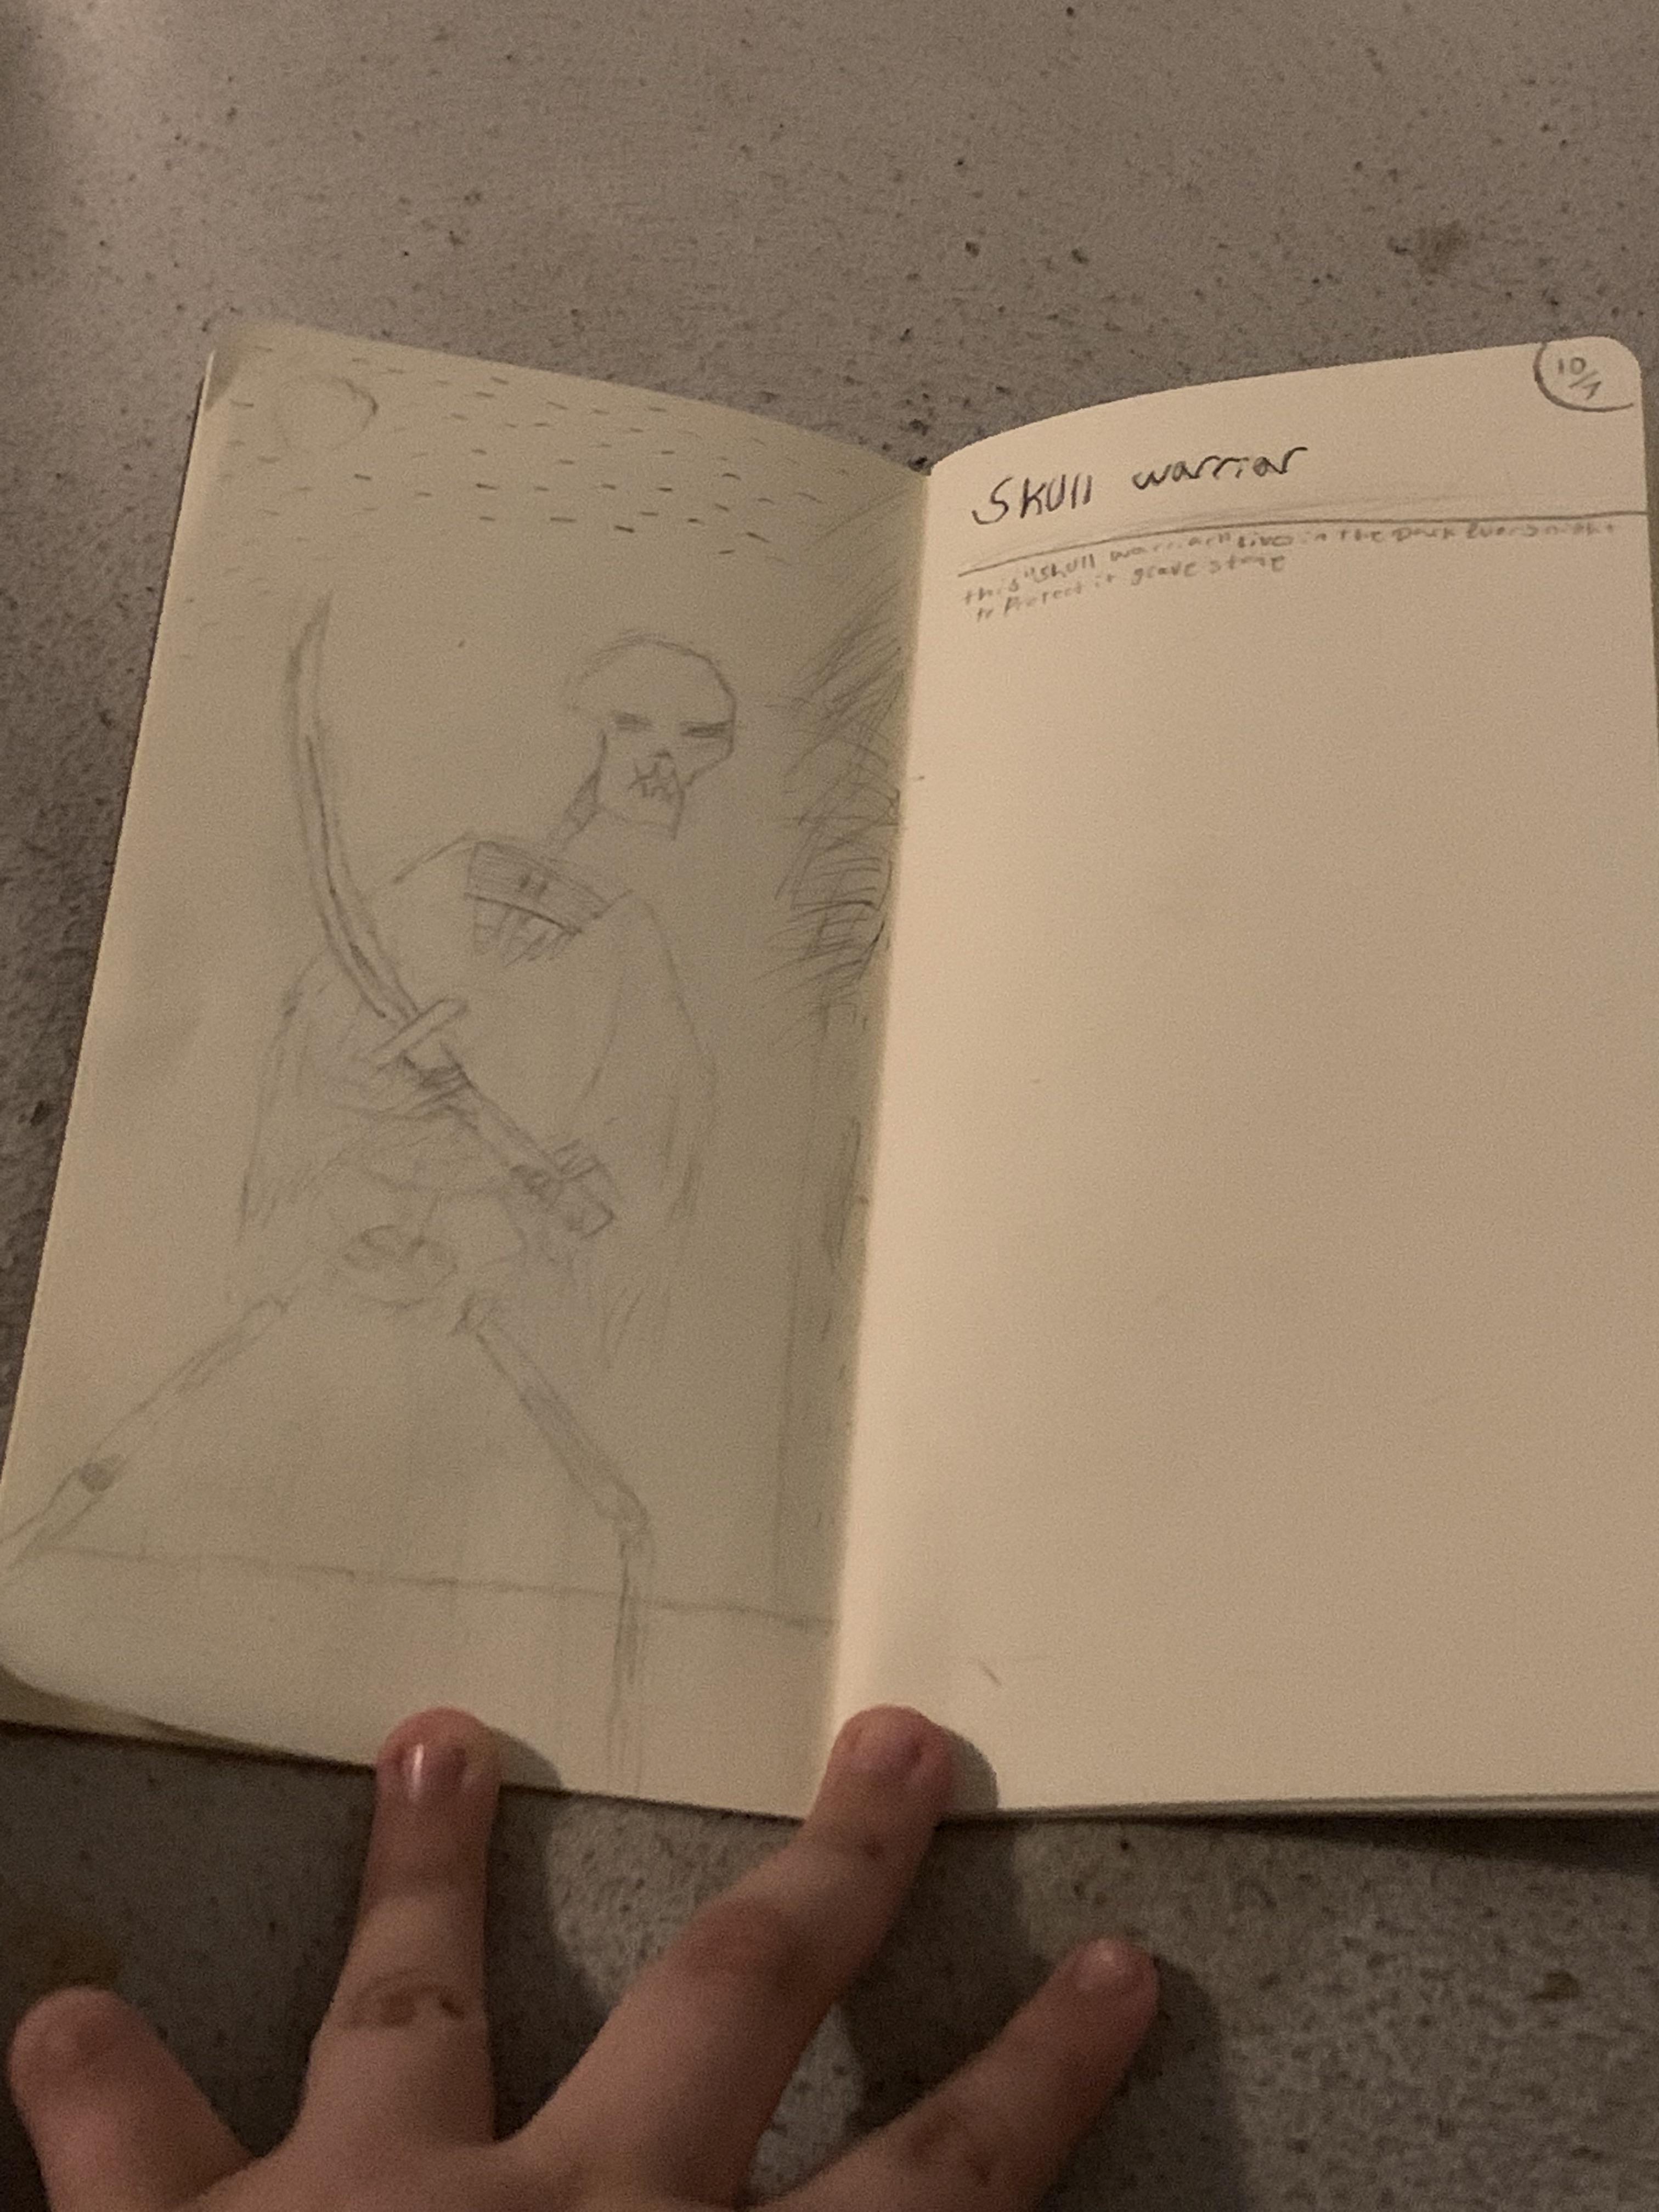 10/1
Skull warrior
this "skull warrior" lives in the Dark Every night
to Protect it grave stone